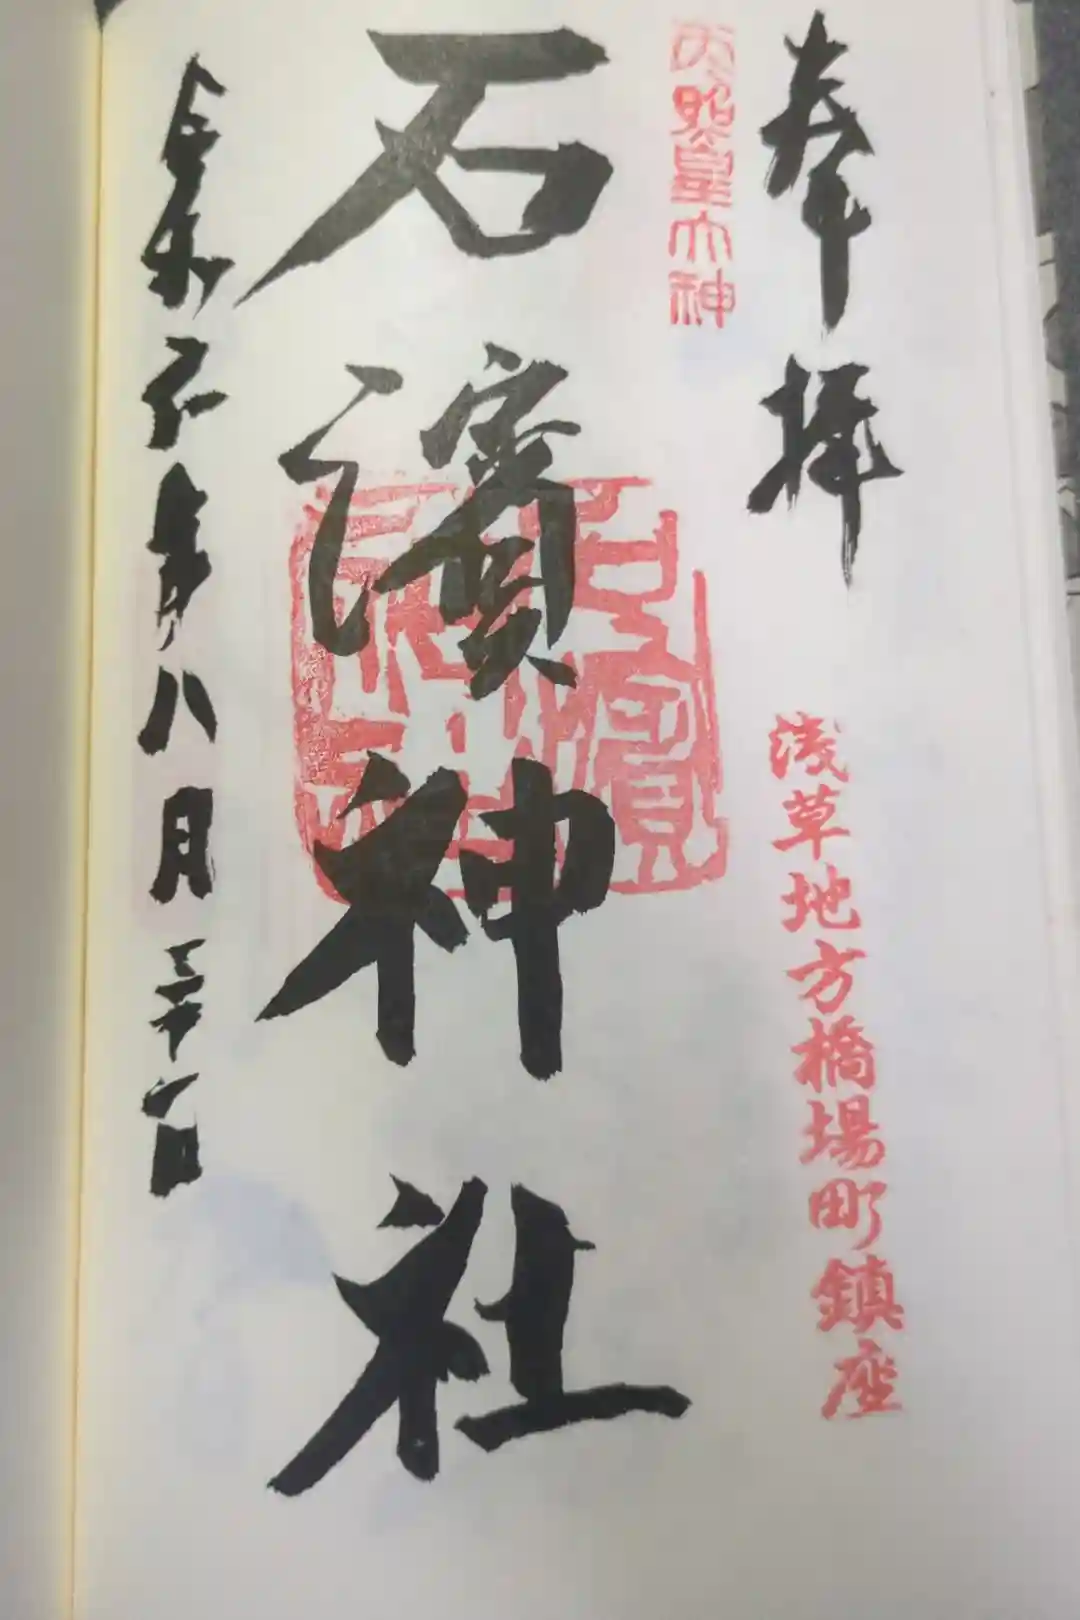 奉拝
浅草地方橋場町鎮座
天照皇大神
石濱神社
令和五年八月三十一日